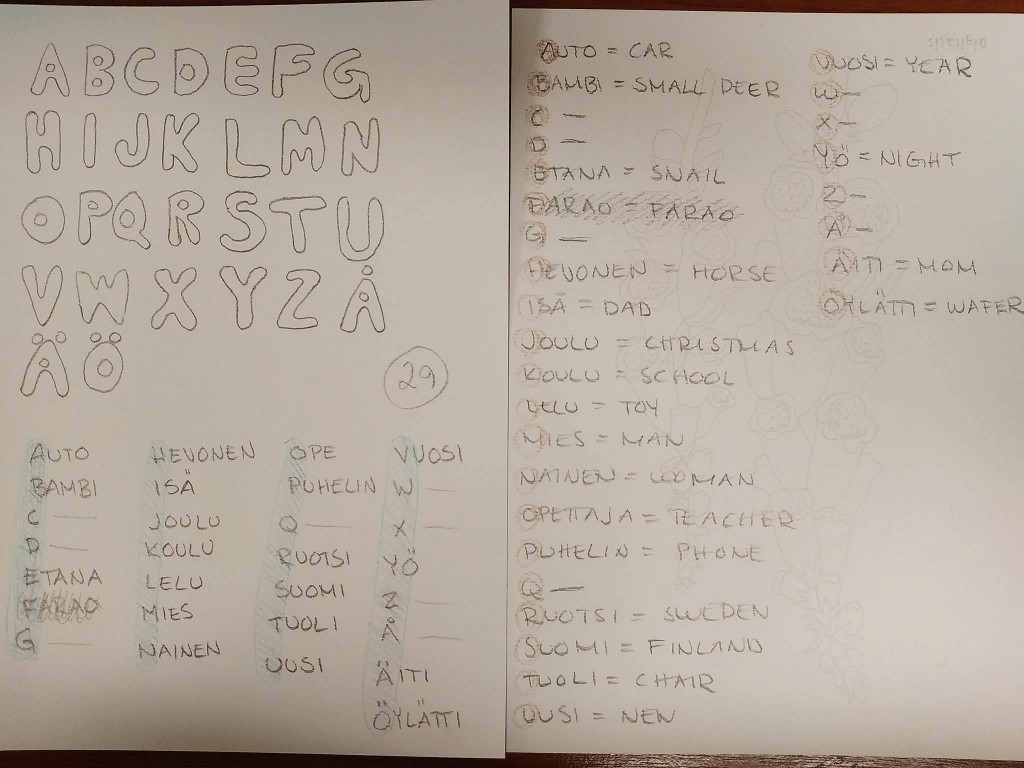 A B C D E F G
H I J K L M N
O P Q R S T U
V W X Y Z Å
Ä Ö
29
AUTO
BAMBI
C —
D —
ETANA
FARAO
G —
HEVONEN
ISÄ
JOULU
KOULU
LELU
MIES
NAINEN
OPE
PUHELIN
Q —
RUOTSI
SUOMI
TUOLI
UUSI
VUOSI
W —
X —
YÖ
Z —
Å —
ÄITI
ÖYLÄTTI
Digitalis
AUTO = CAR
BAMBI = SMALL DEER
C —
D —
ETANA = SNAIL
FARAO = FARAO
G —
HEVONEN = HORSE
ISÄ = DAD
JOULU = CHRISTMAS
KOULU = SCHOOL
LELU = TOY
MIES = MAN
NAINEN = WOMAN
OPETTAJA = TEACHER
PUHELIN = PHONE
Q —
RUOTSI = SWEDEN
SUOMI = FINLAND
TUOLI = CHAIR
UUSI = NEW
VUOSI = YEAR
W —
X —
YÖ = NIGHT
Z —
Å —
ÄITI = MOM
ÖYLÄTTI = WAFER